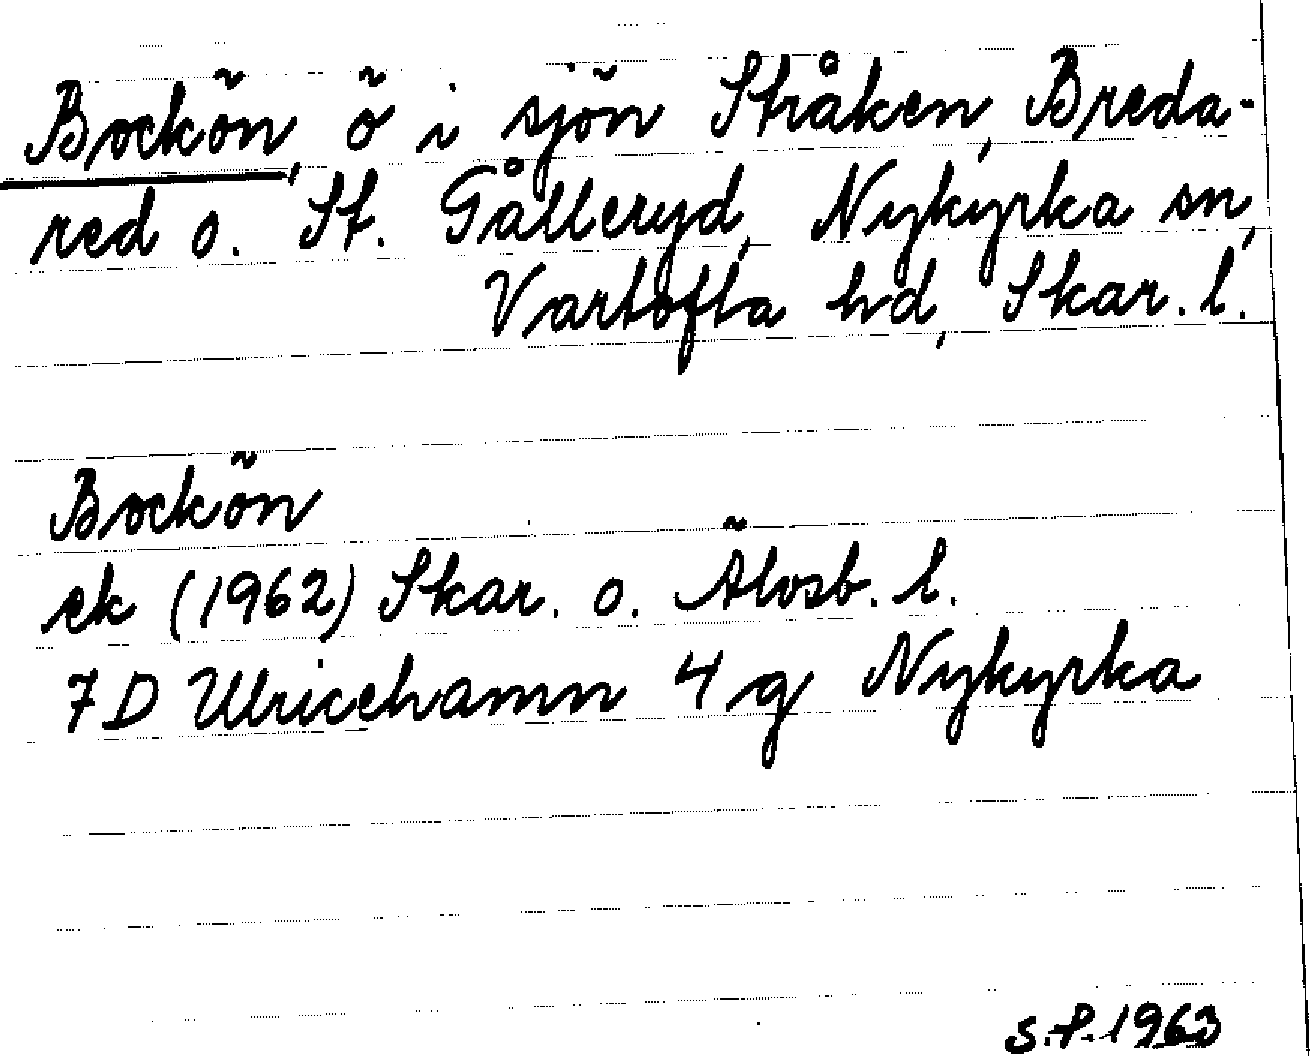 Bockön, ö i sjön Stråken, Breda-
red o. St. Gålleryd, Nykyrka sn,
Vartofta hd, Skar. l.
Bockön
ek (1962) Skar. o. Älvsb. l.
7 D Ulricehamn 4 g Nykyrka
S.P. 1963